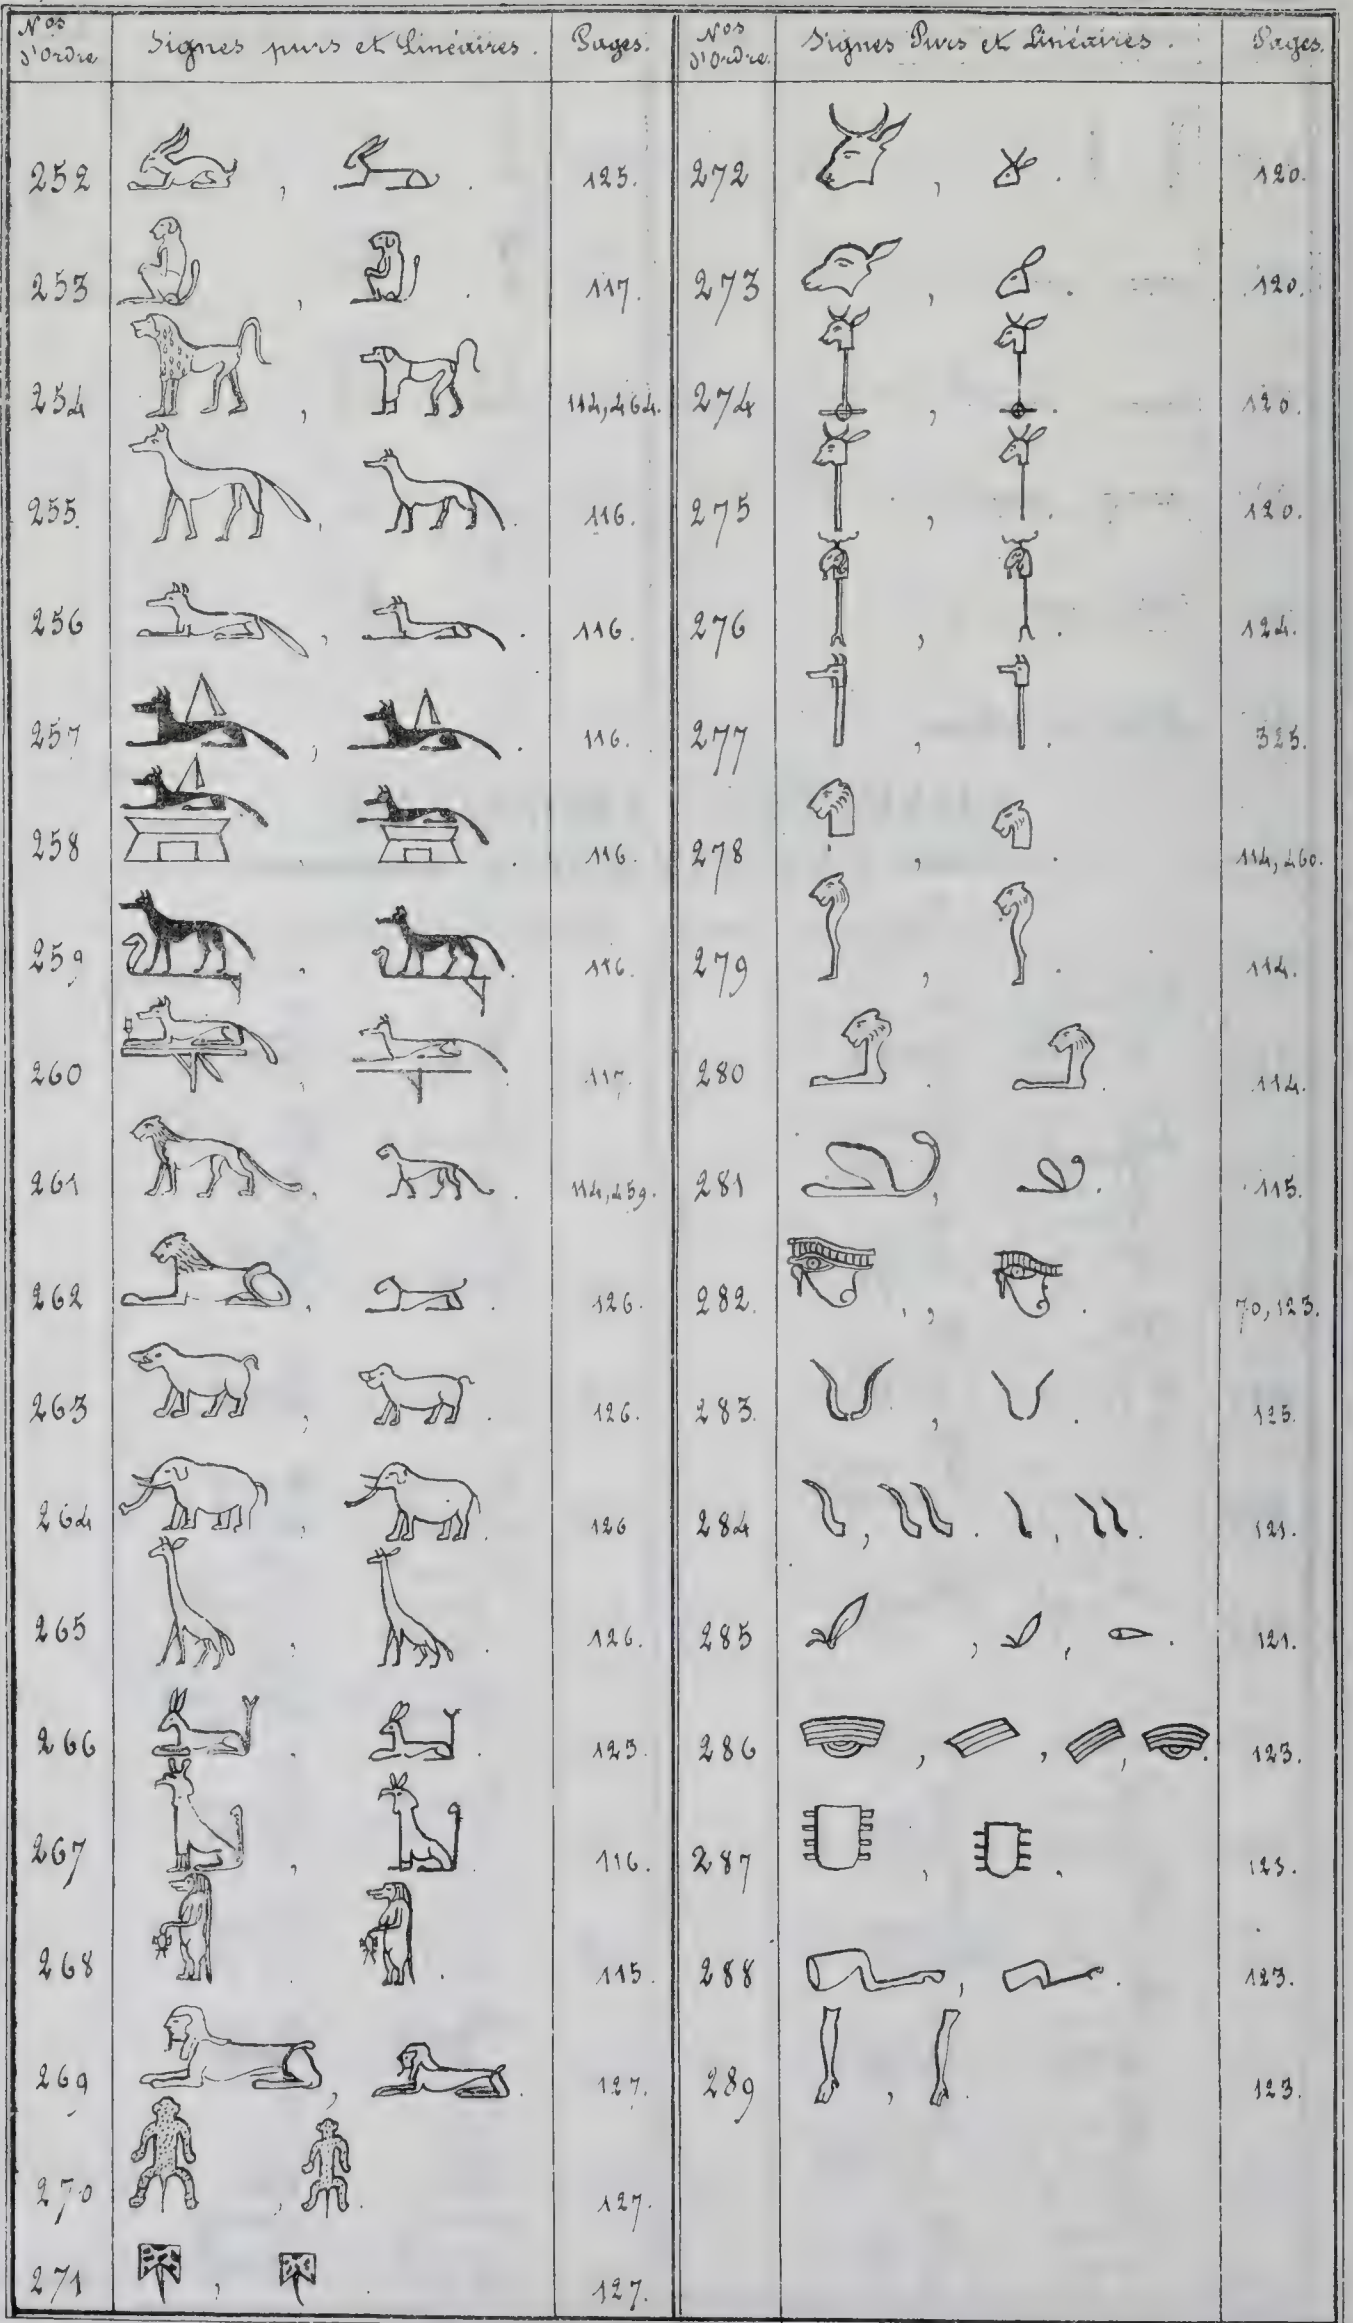 Nos d'Ordre Signes purs et Linéaires. Pages.
252 , . 125.
253 , . 117.
254 , . 114, 464.
255. , . 116.
256 , . 116.
257 , . 116.
258 . . 116.
259 . . 116.
260 , . 117.
261 , . 114, 459.
262 . . 126.
263 , . 126.
264 , . 126
265 , . 126.
266 . . 123.
267 , . 116.
268 . . 115.
269 , . 127.
270 , . 127.
271 , . 127.
Nos d'Ordre. Signes Purs et Linéaires. Pages.
272 , . 120.
273 , . 120.
274 , . 120.
275 , . 120.
276 , . 124.
277 , . 325.
278 , . 114, 460.
279 , . 114.
280 . . 114.
281 , . 115.
282. , . 70, 123.
283. , . 125.
284 , . , . 121.
285 , , . 121.
286 , , , . 123.
287 , . 123.
288 , . 123.
289 , . 123.